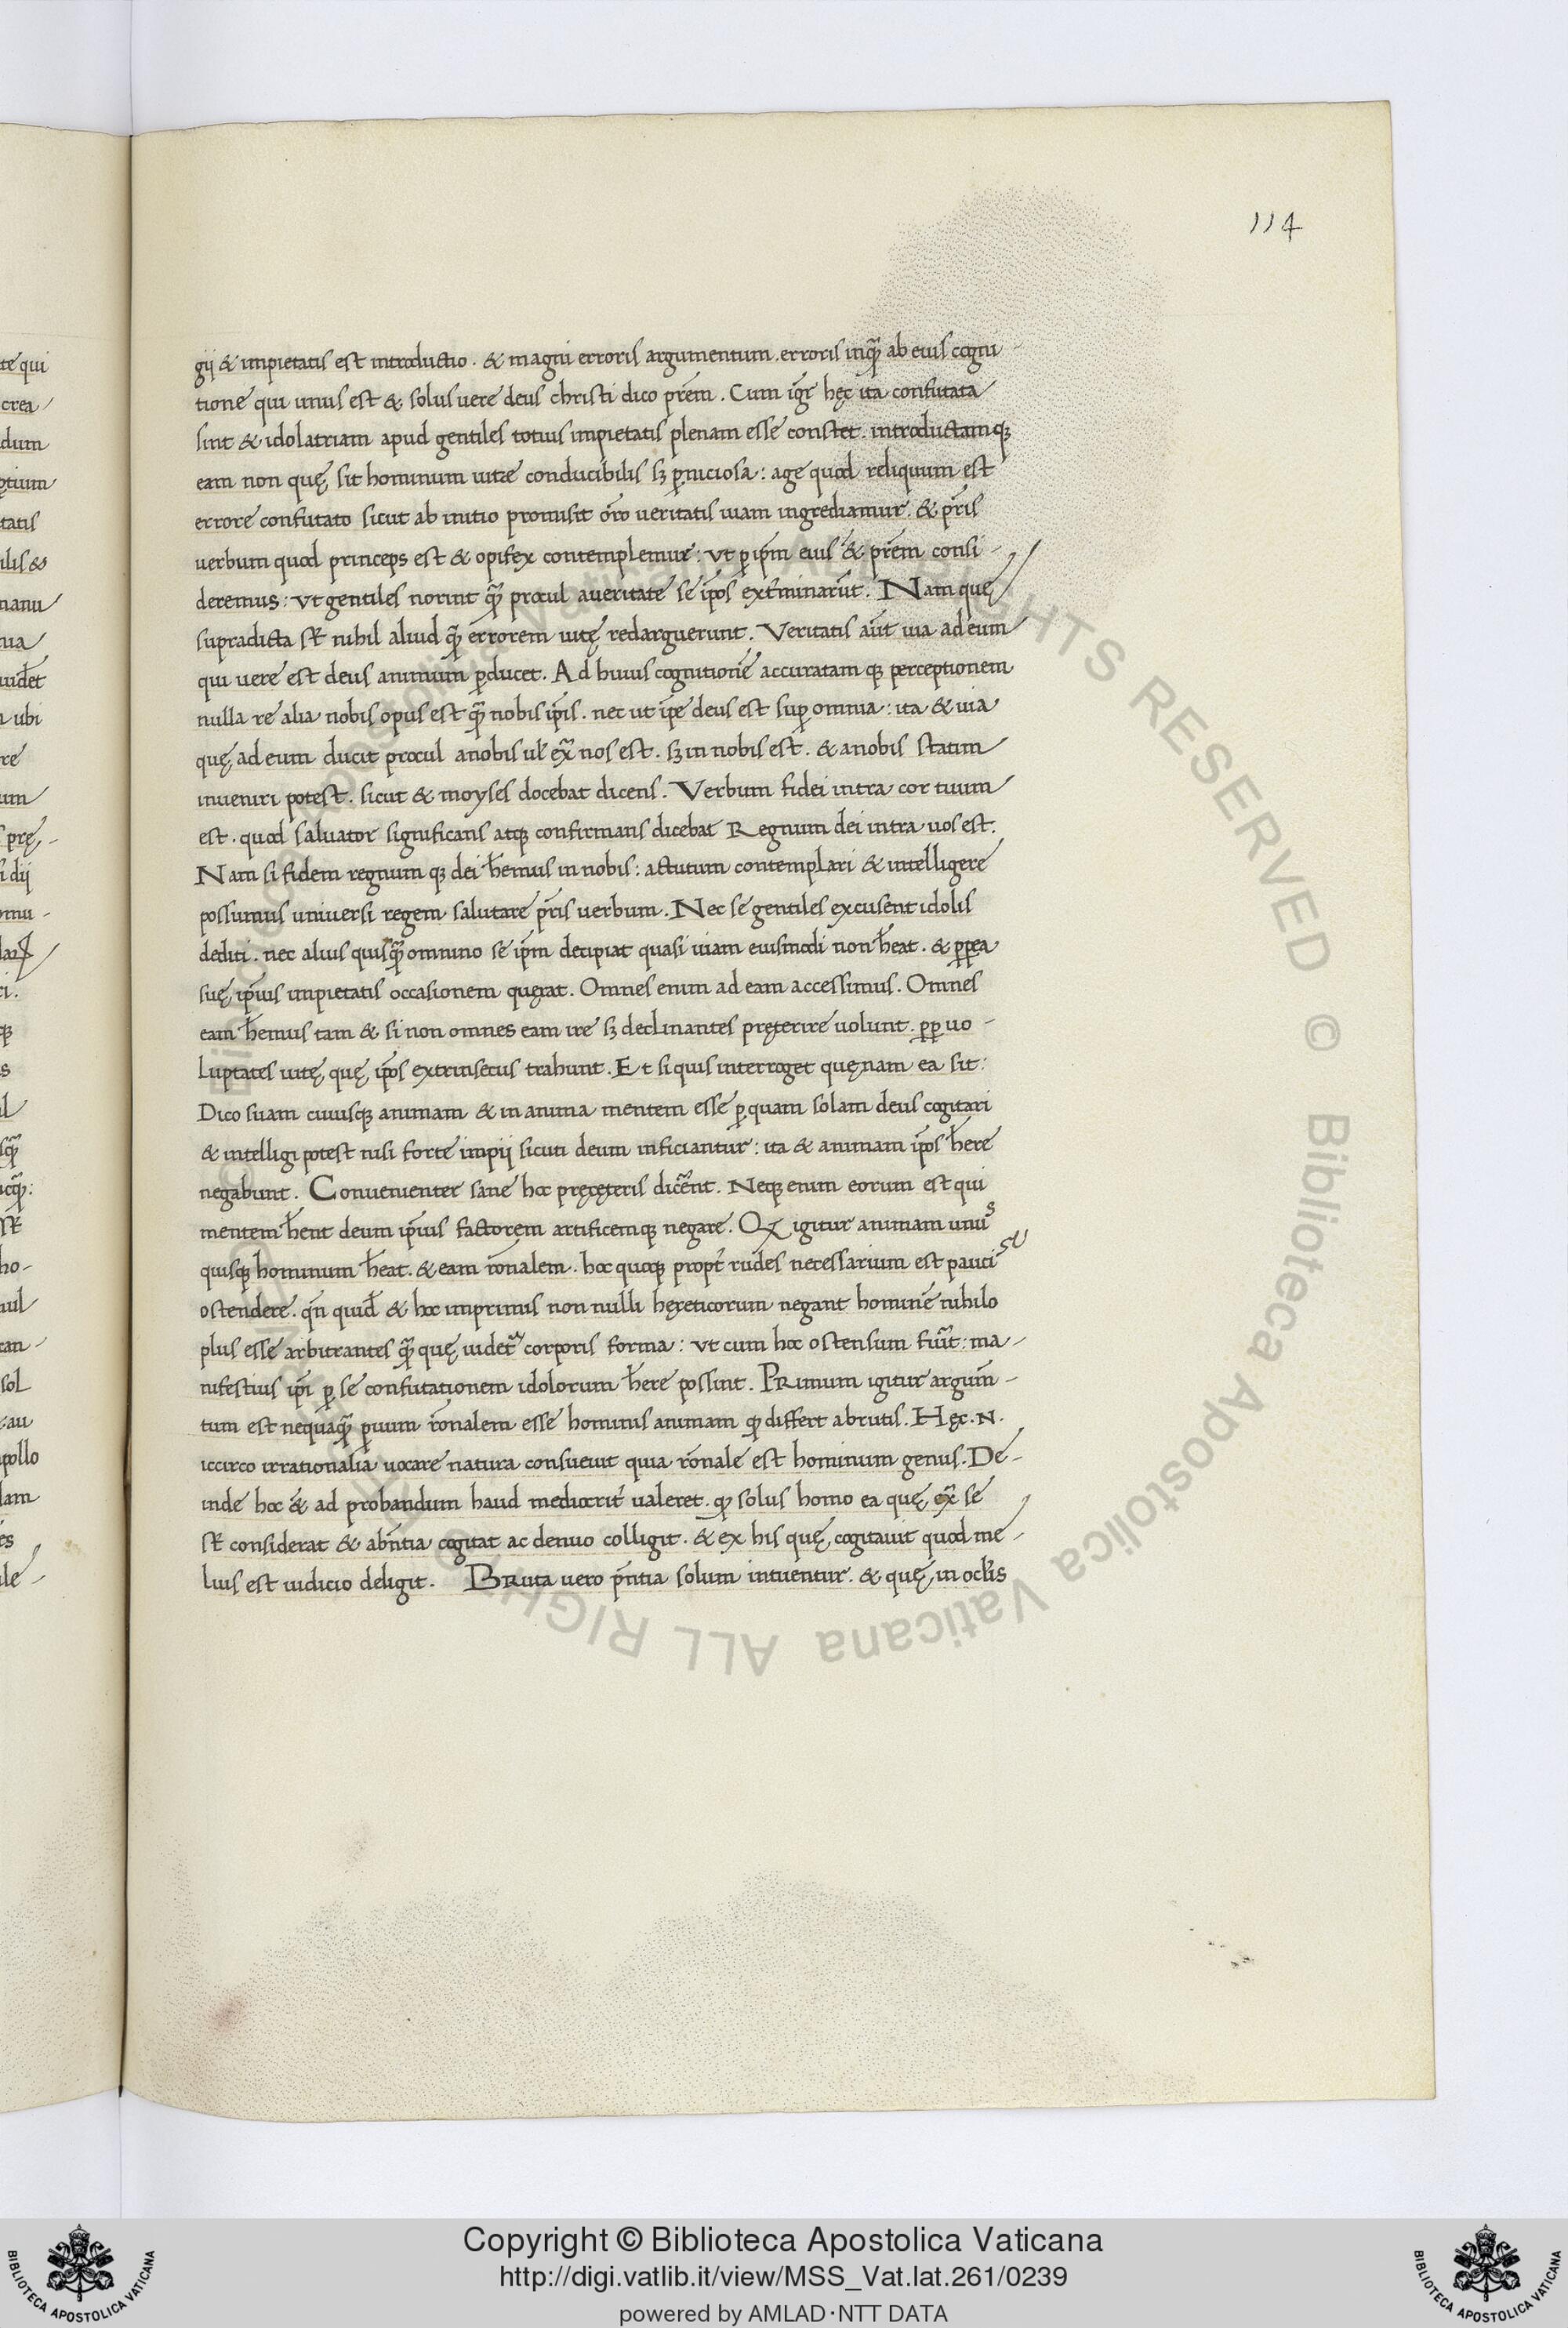 114
gij & impietatis est introductio. & magni erroris argumentum. erroris inq̃ ab eius cogni-
tione qui unus est & solus uere deus christi dico prẽm. Cum igr̃ hęc ita confutata
sint & idolatriam apud gentiles totius impietatis plenam esse constet. introductamqꝫ
eam non quę sit hominum uitae conducibilis sꝫ ꝑniciosa: age quod reliquum est
errore confutato sicut ab initio promisit or̃o ueritatis uiam ingrediamur. & pr̃is
verbum quod princeps est & opifex contemplemur: vt ꝑ ip̃m eius & prẽm consi-
deremus: vt gentiles norint q̃ procul aueritate se ip̃os ext̃minarũt. Nam quę
supradicta st̃ nihil aliud q̃ errorem uitę redarguerunt. Veritatis aũt uia ad eum
qui uere est deus animum ꝑducet. Ad huius cognitionẽ accuratam qꝫ perceptionem
nulla re alia nobis opus est q̃ nobis ip̃is. nec ut ip̃e deus est suꝑ omnia: ita & uia
quę ad eum ducit procul anobis ul̃ ex̃ nos est. sꝫ in nobis est. & anobis statim
inueniri potest. sicut & moyses docebat dicens. Verbum fidei intra cor tuum
est. quod saluator significans atqꝫ confirmans dicebat Regnum dei intra uos est.
Nam si fidem regnum qꝫ dei h̃emus in nobis: actutum contemplari & intelligere
possumus uniuersi regem salutare pr̃is uerbum. Nec se gentiles excusent idolis
dediti. nec alius quisq̃ omnino se ip̃m decipiat quasi uiam eiusmodi non h̃eat. & ꝓꝑea
suę ip̃ius impietatis occasionem quęrat. Omnes enim ad eam accessimus. Omnes
eam h̃emus tam & si non omnes eam ire sꝫ declinantes pręterire uolunt. ꝓꝑ uo-
luptates uitę quę ip̃os extrinsecus trahunt. Et si quis interroget quęnam ea sit:
Dico suam cuiusqꝫ animam & in anima mentem esse ꝑ quam solam deus cogitari
& intelligi potest nisi forte impij sicuti deum inficiantur: ita & animam ip̃os h̃ere
negabunt. Conuenienter sane hoc pręcęteris dic̃ent. Neqꝫ enim eorum est qui
mentem h̃ent deum ip̃ius factorem artificemqꝫ negare. Qꝫ igitur animam unus
quisqꝫ hominum h̃eat. & eam rõnalem. hoc quoqꝫ propt̃ rudes necessarium est paucis
ostendere. qñ quid̃ & hoc imprimis non nulli hęreticorum negant hominẽ nihilo
plus esse arbitrantes q̃ quę uidetur corporis forma: vt cum hoc ostensum fuit̃: ma-
nifestius ip̃i ꝑ se confutationem idolorum h̃ere possint. Primum igitur argum̃-
tum est nequaq̃ ꝑuum rõnalem esse hominis animam qꝫ differt abrutis. Hęc. N.
iccirco irrationalia uocare natura consueuit quia rõnale est hominum genus. De-
inde hoc & ad probandum haud mediocrit̃ ualeret. qꝫ solus homo ea quę ex̃ se
st̃ considerat & abñtia cogitat ac denuo colligit. & ex his quę cogitauit quod me-
lius est iudicio deligit. Bruta uero p̃ntia solum intuentur. & quę in ocl̃is
Copyright © Biblioteca Apostolica Vaticana
http://digi.vatlib.it/view/MSS_Vat.lat.261/0239
powered by AMLAD·NTT DATA
BIBLIOTECA APOSTOLICA VATICANA
BIBLIOTECA APOSTOLICA VATICANA